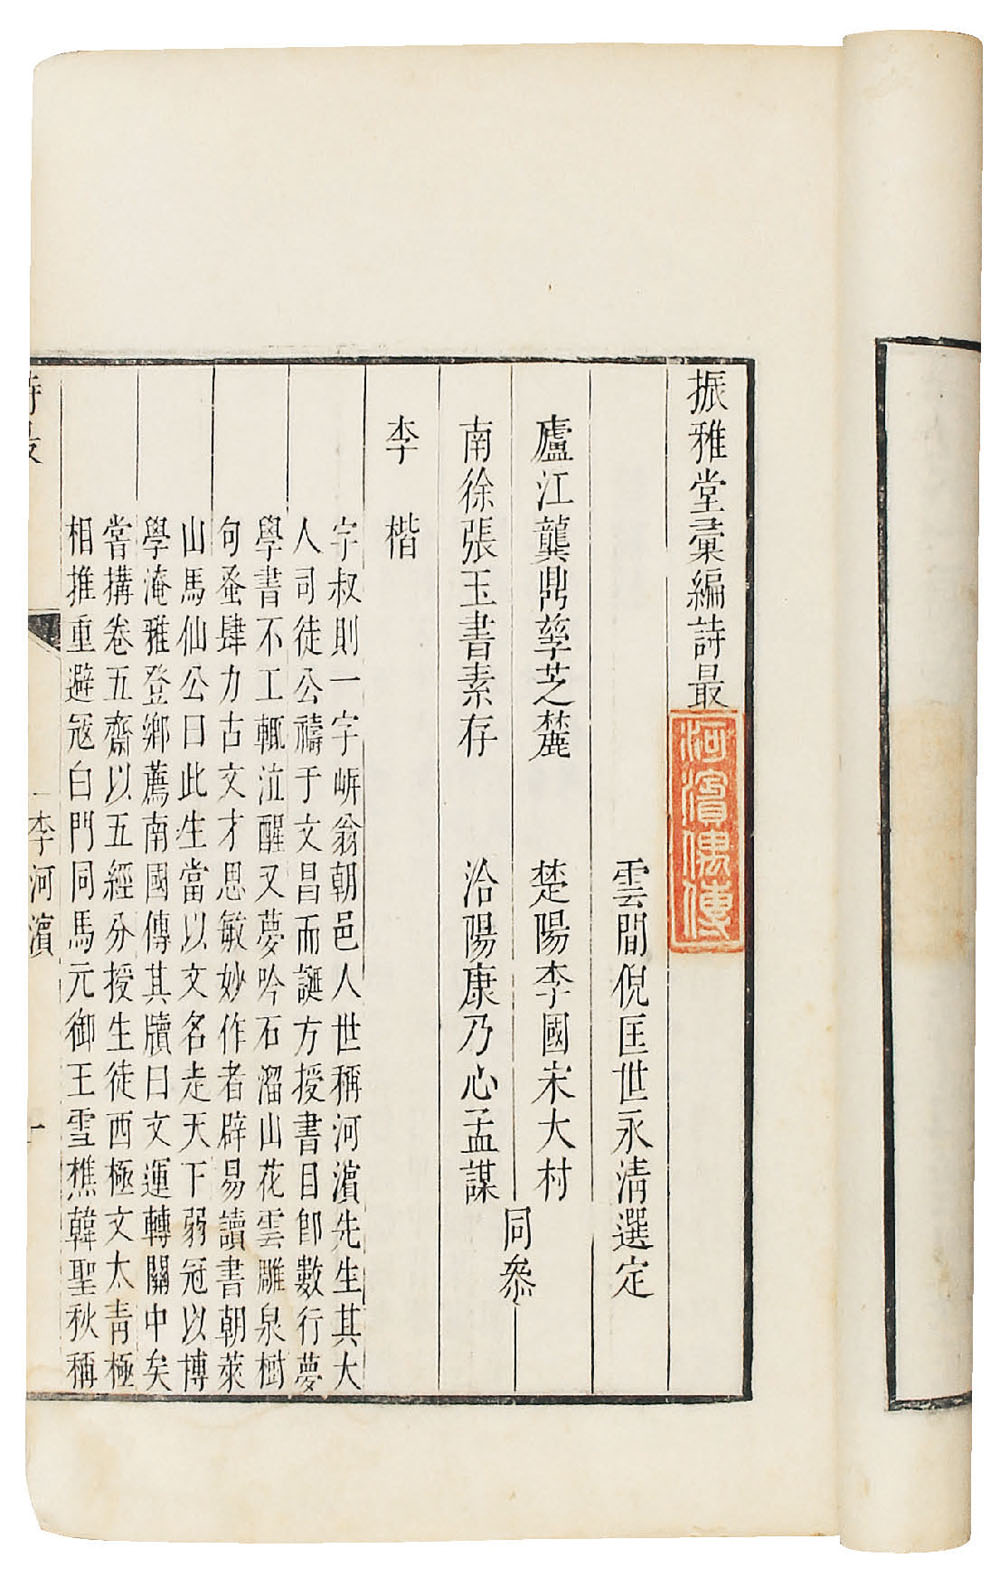 振雅堂彙編詩最
河濱偶傳
雲間倪匡世永清選定
廬江龔鼎孳芝麓 楚陽李國宋大村
同叅
南徐張玉書素存 洽陽康乃心孟謀
李楷
字叔則一字岍翁朝邑人世稱河濱先生其大
人司徒公禱于文昌而誕方授書目即數行夢
學書不工輒泣醒又夢吟石溜山花雲雕泉樹
句蚤肆力古文才思敏妙作者辟易讀書朝萊
山馬仙公曰此生當以文名走天下弱冠以博
學淹雅登鄉薦南國傳其牘曰文運轉關中矣
嘗搆卷五齋以五經分授生徒西極文太青極
相推重避寇白門同馬元御王雪樵韓聖秋稱
詩最
李河濱
一